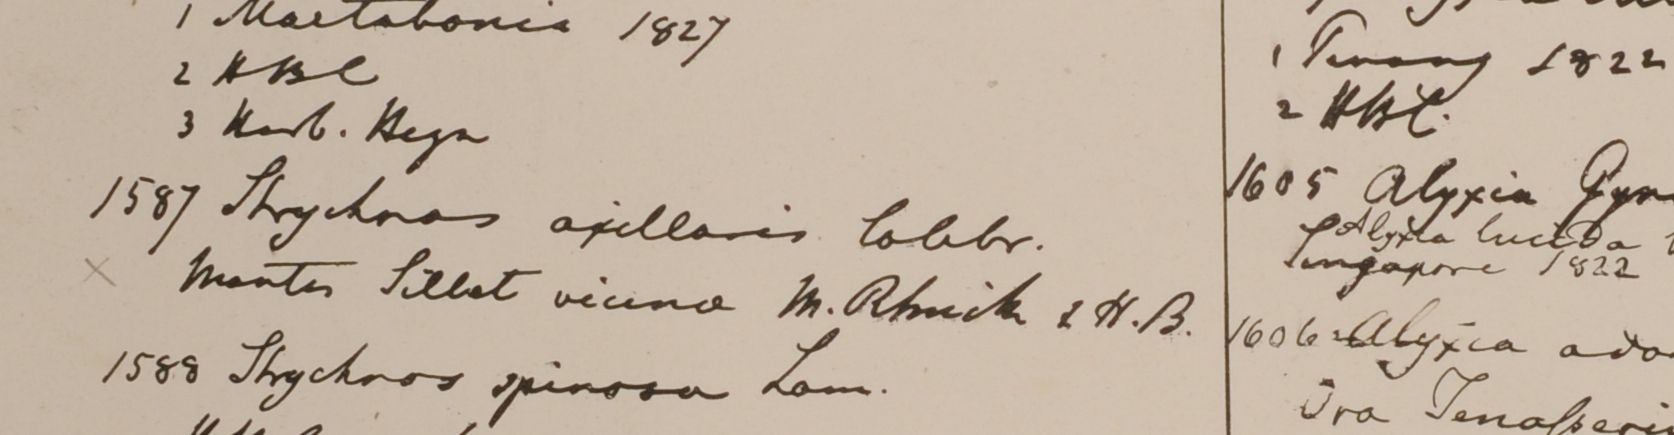 1 Martabonia 1827
2 HBC
3 Herb. Heyn
1587 Strychnos axillaris Colebr.
Montes Sillet vicina M.R. & H.B.
1588 Strychnos spinosa Lam.
1 Penang 1822
2 HBC.
1605 Alyxia Gyn
Alyxia lucida
Singapore 1822
1606 Alyxia odo
Ora Tenasseri